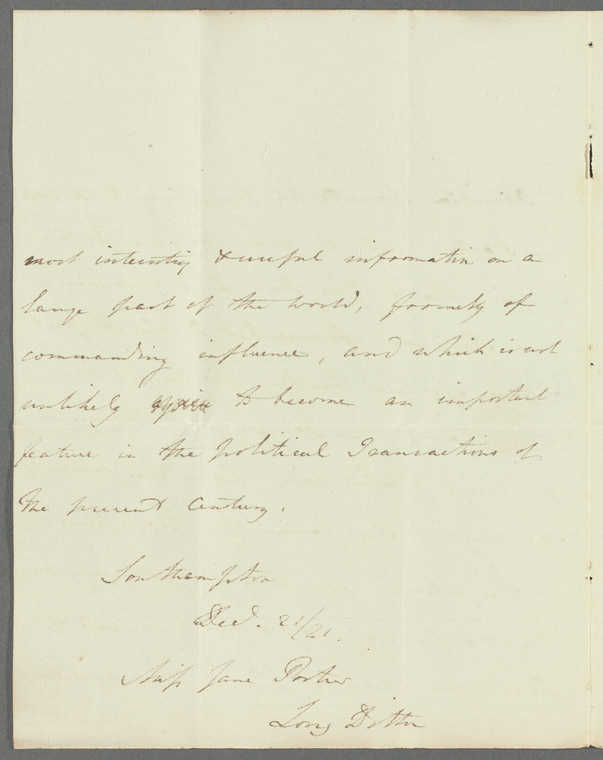 most interesting & useful information on a
large part of the world, formerly of
commanding influence, and which is not
unlikely again to become an important
feature in the political transactions of
the present century.
Southampton
Decr. 21/21.
Miss Jane Porter
Long Ditton